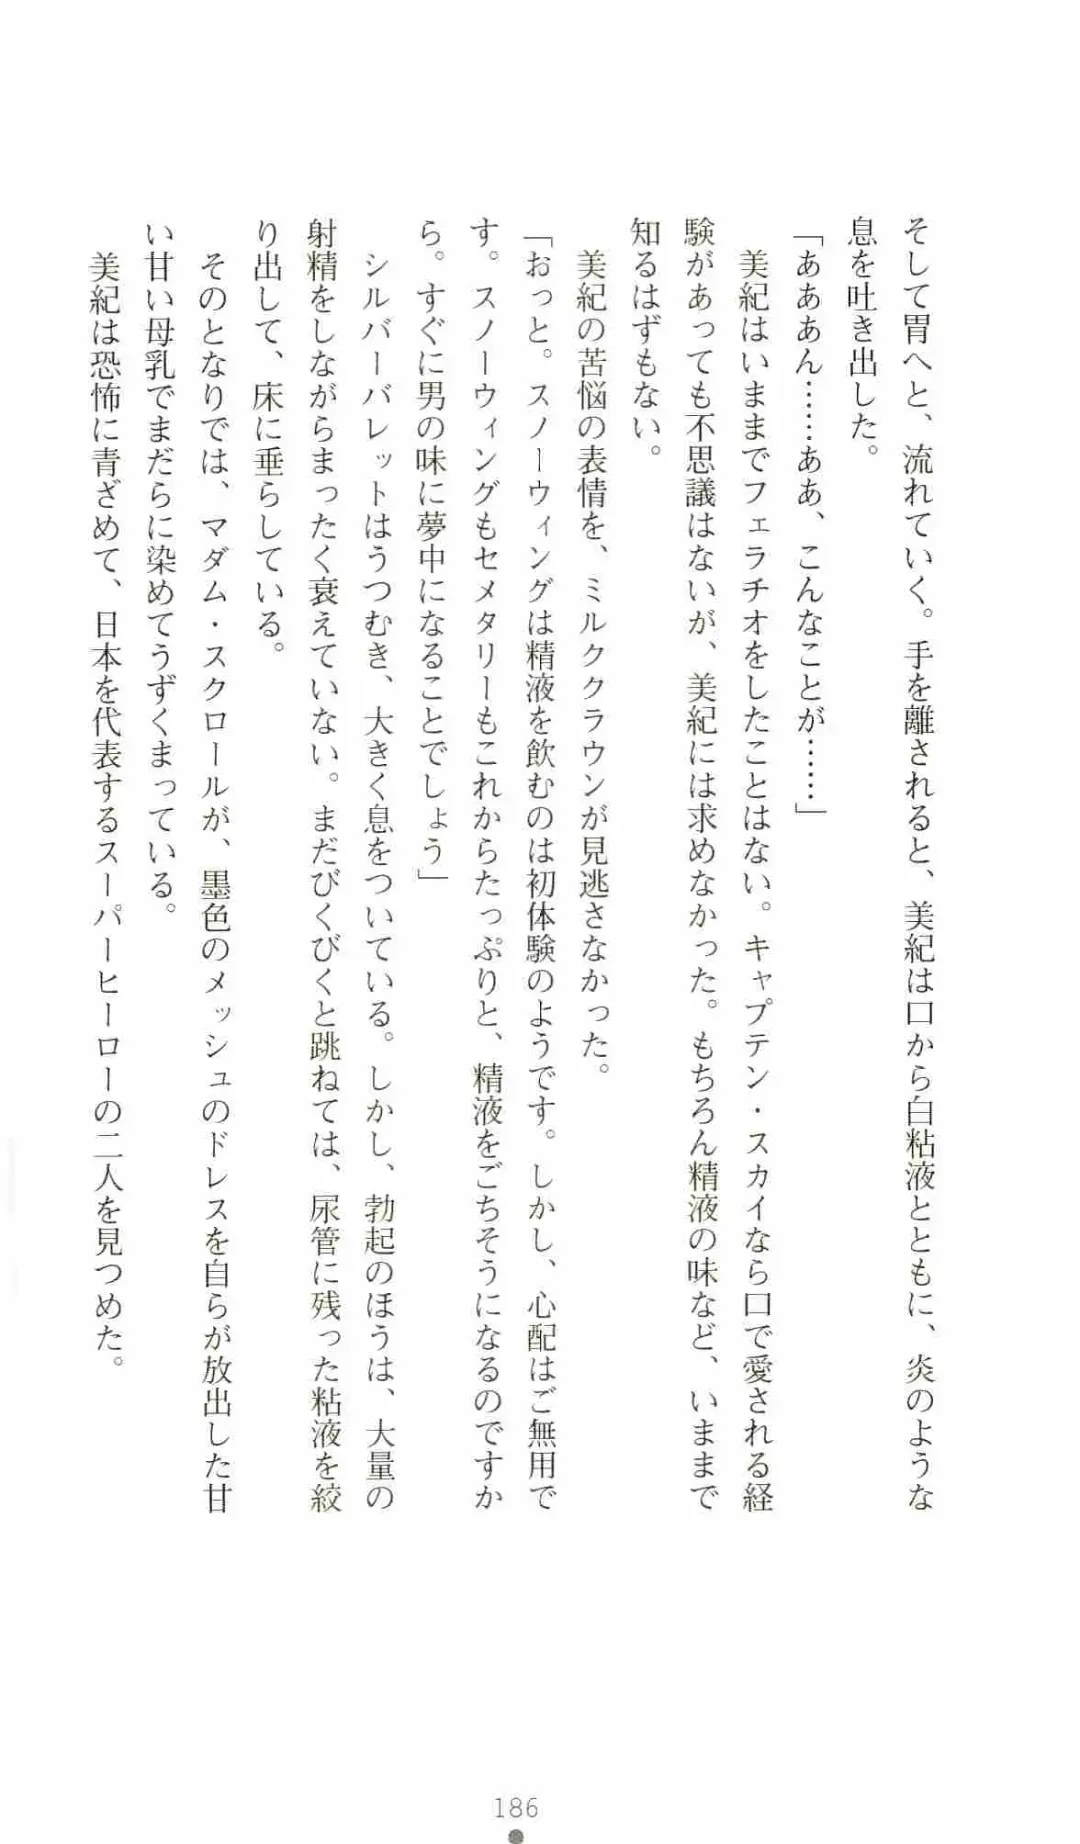 そして胃へと、流れていく。手を離されると、美紀は口から白粘液とともに、炎のような
息を吐き出した。
「あああん……ああ、こんなことが……」
　美紀はいままでフェラチオをしたことはない。キャプテン・スカイなら口で愛される経
験があっても不思議はないが、美紀には求めなかった。もちろん精液の味など、いままで
知るはずもない。
　美紀の苦悩の表情を、ミルククラウンが見逃さなかった。
「おっと。スノーウィングは精液を飲むのは初体験のようです。しかし、心配はご無用で
す。スノーウィングもセメタリーもこれからたっぷりと、精液をごちそうになるのですか
ら。すぐに男の味に夢中になることでしょう」
　シルバーバレットはうつむき、大きく息をついている。しかし、勃起のほうは、大量の
射精をしながらまったく衰えていない。まだびくびくと跳ねては、尿管に残った粘液を絞
り出して、床に垂らしている。
　そのとなりでは、マダム・スクロールが、墨色のメッシュのドレスを自らが放出した甘
い甘い母乳でまだらに染めてうずくまっている。
　美紀は恐怖に青ざめて、日本を代表するスーパーヒーローの二人を見つめた。
186